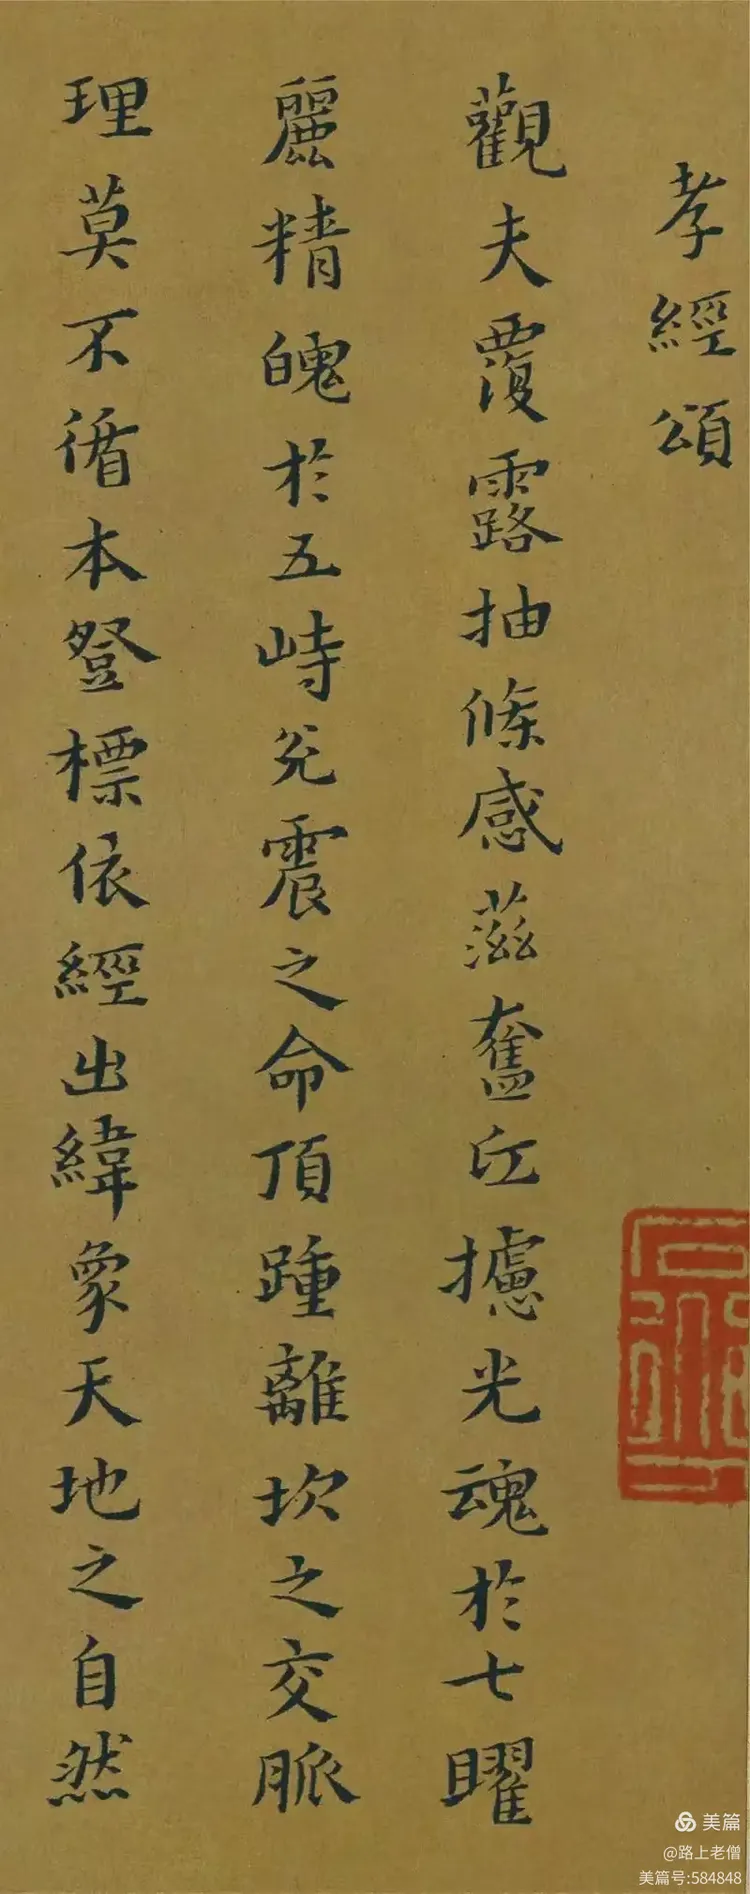 孝經頌
觀夫覆露抽條感滋奮攄光魂於七曜
麗精魄於五峙兊震之命頂踵離坎之交脈
理莫不循本登標依經出緯象天地之自然
美篇
@路上老僧
美篇号:584848